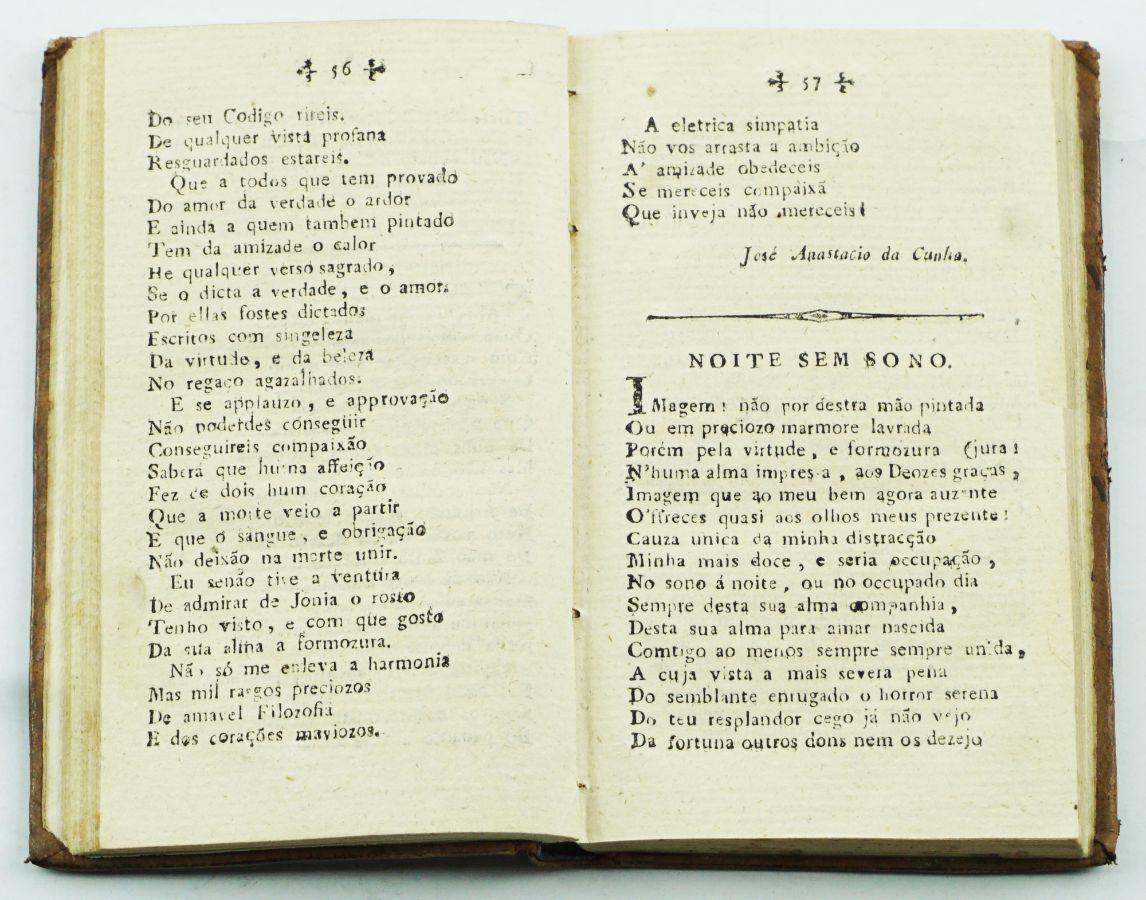 56
Do seu Codigo rireis.
De qualquer vista profana
Resguardados estareis.
Que a todos que tem provado
Do amor da verdade o ardor
E ainda a quem tambem pintado
Tem da amizade o calor
He qualquer verso sagrado,
Se o dicta a verdade, e o amor.
Por ellas fostes dictados
Escritos com singeleza
Da virtude, e da beleza
No regaço agazalhados.
E se applauzo, e approvação
Não poderdes conseguir
Conseguireis compaixão
Saberá que huma affeição
Fez de dois hum coração
Que a morte veio a partir
E que o sangue, e obrigação
Não deixão na morte unir.
Eu senão tive a ventura
De admirar de Jonia o rosto
Tenho visto, e com que gosto
Da sua alma a formozura.
Não só me enleva a harmonia
Mas mil rasgos preciozos
De amavel Filozofia
E dos corações maviozos.
57
A eletrica simpatia
Não vos arrasta a ambição
A' amizade obedeceis
Se mereceis compaixã
Que inveja não mereceis!
José Anastacio da Cunha.
NOITE SEM SONO.
IMagem! não por destra mão pintada
Ou em preciozo marmore lavrada
Porém pela virtude, e formozura (jura!
N'huma alma impressa, aos Deozes graças,
Imagem que ao meu bem agora auzente
O'ffreces quasi aos olhos meus prezente!
Cauza unica da minha distracção
Minha mais doce, e seria occupação,
No sono á noite, ou no occupado dia
Sempre desta sua alma companhia,
Desta sua alma para amar nascida
Comtigo ao menos sempre sempre unida,
A cuja vista a mais severa pena
Do semblante enrugado o horror serena
Do teu resplandor cego já não vejo
Da fortuna outros dons nem os dezejo